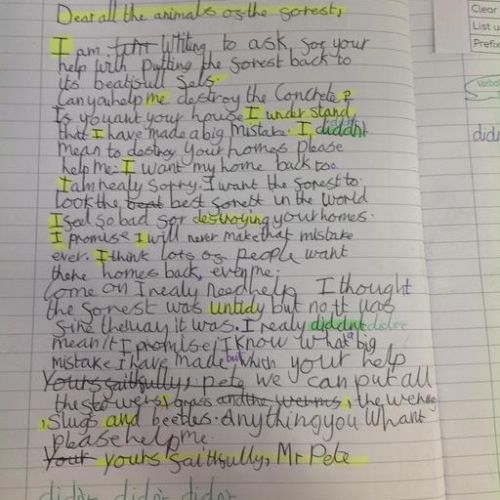 Dear all the animals os the sorest,
I am writing to ask, sor your
help with putting the sorest back to
its beatisull sels.
Can you help me destroy the Concrete?
Is you want your house I under stand
that I have made a big mistake. I diddn't
mean to destroy your homes please
help me. I want my home back too
I am realy sorry. I want the sorest to
Look the beat best sorest in the world
I seel so bad sor destroying your homes.
I promise I will never make that mistake
ever. I think lots os people want
there homes back, even me.
Come on I realy need help I thought
the sorest was untidy but no it was
sine the way it was. I realy diddn't didn't
mean it I promise I know what a big
mistake I have made but which your help
Yours saithfully, Pete we can put all
the and the werms, the werms
, slugs and beetles. Anything you whant
please help me.
Your yours saithfully, Mr Pete
didn't didn't didn't
Clear
List u
Prefix
Verbs
didn